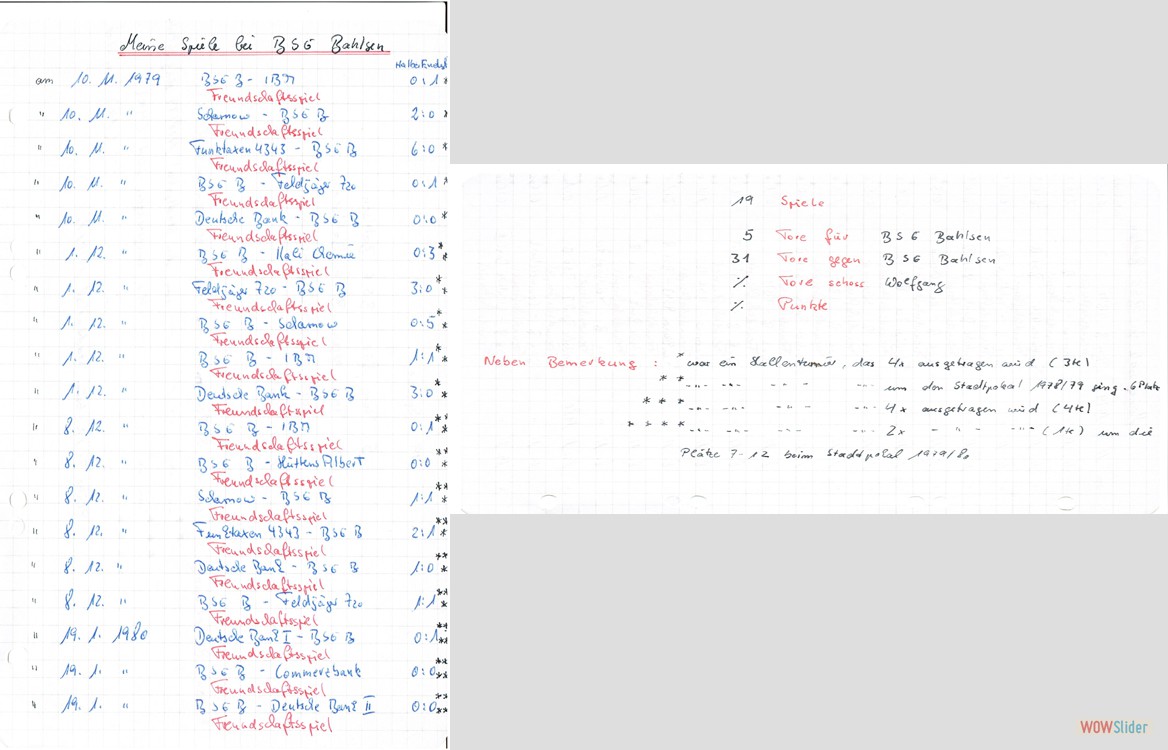 Meine Spiele bei BSG Bahlsen
Halbe Endst
am 10. 11. 1979 BSG B - IBM 0:1 *
Freundschaftsspiel
" 10. 11. " Scharnow - BSG B 2:0 *
Freundschaftsspiel
" 10. 11. " Funktaxen 4343 - BSG B 6:0 *
Freundschaftsspiel
" 10. 11. " BSG B - Feldjäger 720 0:1 *
Freundschaftsspiel
" 10. 11. " Deutsche Bank - BSG B 0:0 *
Freundschaftsspiel
" 1. 12. " BSG B - Kali Chemie 0:3 **
Freundschaftsspiel
" 1. 12. " Feldjäger 720 - BSG B 3:0 **
Freundschaftsspiel
" 1. 12. " BSG B - Scharnow 0:5 **
Freundschaftsspiel
" 1. 12. " BSG B - IBM 1:1 **
Freundschaftsspiel
" 1. 12. " Deutsche Bank - BSG B 3:0 **
Freundschaftsspiel
" 8. 12. " BSG B - IBM 0:1 ***
Freundschaftsspiel
" 8. 12. " BSG B - Hüttenes Albert 0:0 ***
Freundschaftsspiel
" 8. 12. " Scharnow - BSG B 1:1 ***
Freundschaftsspiel
" 8. 12. " Funktaxen 4343 - BSG B 2:1 ***
Freundschaftsspiel
" 8. 12. " Deutsche Bank - BSG B 1:0 ***
Freundschaftsspiel
" 8. 12. " BSG B - Feldjäger 720 1:1 ***
Freundschaftsspiel
" 19. 1. 1980 Deutsche Bank I - BSG B 0:1 ****
Freundschaftsspiel
" 19. 1. " BSG B - Commerzbank 0:0 ****
Freundschaftsspiel
" 19. 1. " BSG B - Deutsche Bank II 0:0 ****
Freundschaftsspiel
19 Spiele
5 Tore für BSG Bahlsen
31 Tore gegen BSG Bahlsen
% Tore schoss Wolfgang
% Punkte
Neben Bemerkung : * war ein Hallenturnier, das 4x ausgetragen wird (3te)
** -"- -"- -"- -"- um den Stadtpokal 1978/79 ging. 6 Platz
*** -"- -"- -"- -"- 4x ausgetragen wird (4te)
**** -"- -"- -"- -"- 2x - " - " - (1te) um die
Plätze 7-12 beim Stadtpokal 1979/80
WOWSlider